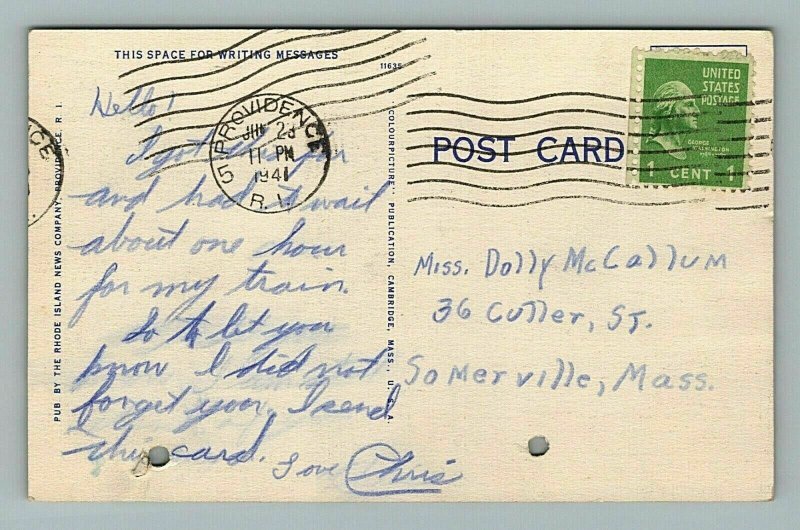 THIS SPACE FOR WRITING MESSAGES
11635
Hello!
I got
and had wait
about one hour
for my train.
So to let you
know I did not
forget you, I send
this card. Love Chris
PROVIDENCE
JUN 23
11 PM
1941
R. I.
5
PUB BY THE RHODE ISLAND NEWS COMPANY, PROVIDENCE, R. I.
"COLOURPICTURE" PUBLICATION, CAMBRIDGE, MASS., U. S. A.
POST CARD
UNITED
STATES
POSTAGE
GEORGE
WASHINGTON
1 CENT 1
Miss. Dolly McCallum
36 Cutler, ST.
Somerville, Mass.